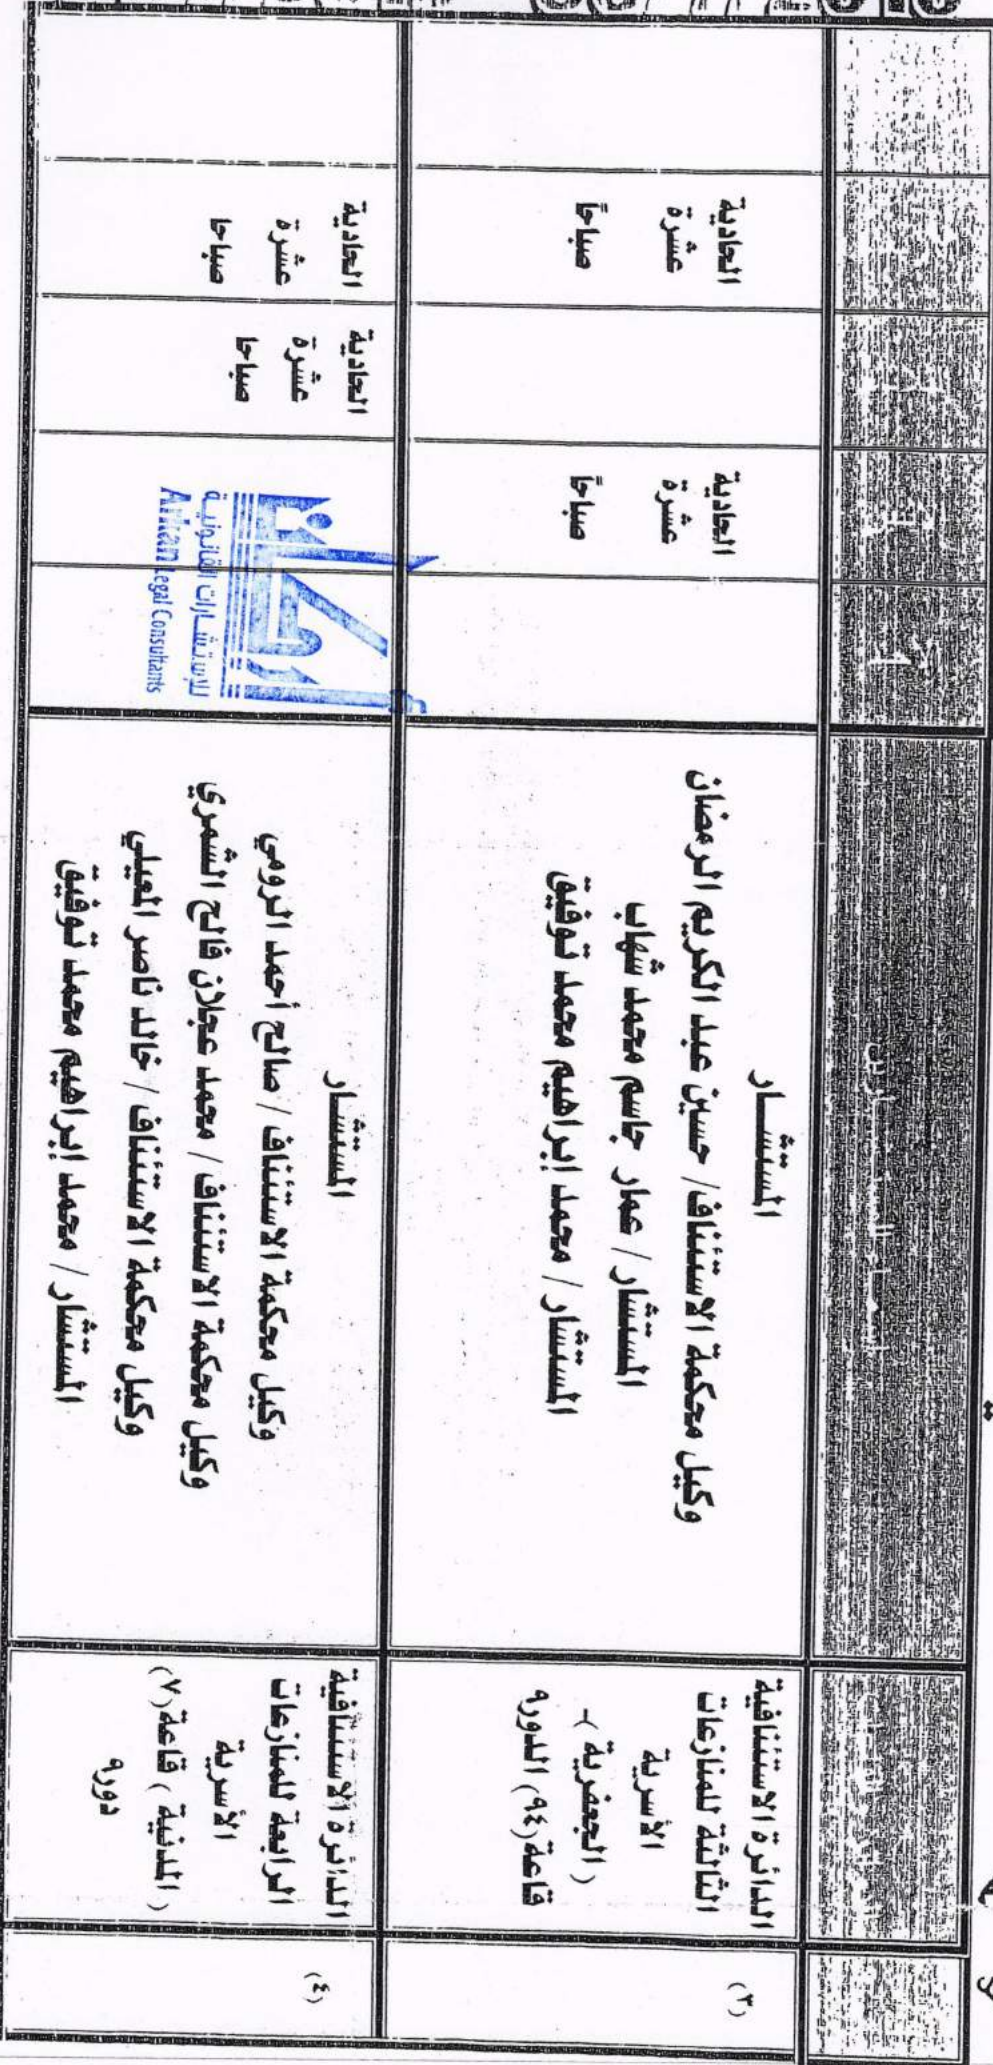 (٣)
الدائرة الاستئنافية
الثالثة للمنازعات
الأسرية
( الجعفرية )-
قاعة(٩٤) الدور٩
المستشــار
وكيل محكمة الاستئناف/ حسين عبد الكريم الرمضان
المستشار/ عمار جاسم محمد شهاب
المستشار / محمد إبراهيم محمد توفيق
الحادية
عشرة
صباحاً
الحادية
عشرة
صباحاً
(٤)
الدائرة الاستئنافية
الرابعة للمنازعات
الأسرية
( المدنية ) قاعة(٧)
دور٩
المستشــار
وكيل محكمة الاستئناف / صالح أحمد الرومي
وكيل محكمة الاستئناف / محمد عجلان فالح الشمري
وكيل محكمة الاستئناف / خالد ناصر المعيلي
المستشار / محمد إبراهيم محمد توفيق
الحادية
عشرة
صباحا
الحادية
عشرة
صباحا
أركان
للإستشـارات القانونيـة
Arkan Legal Consultants